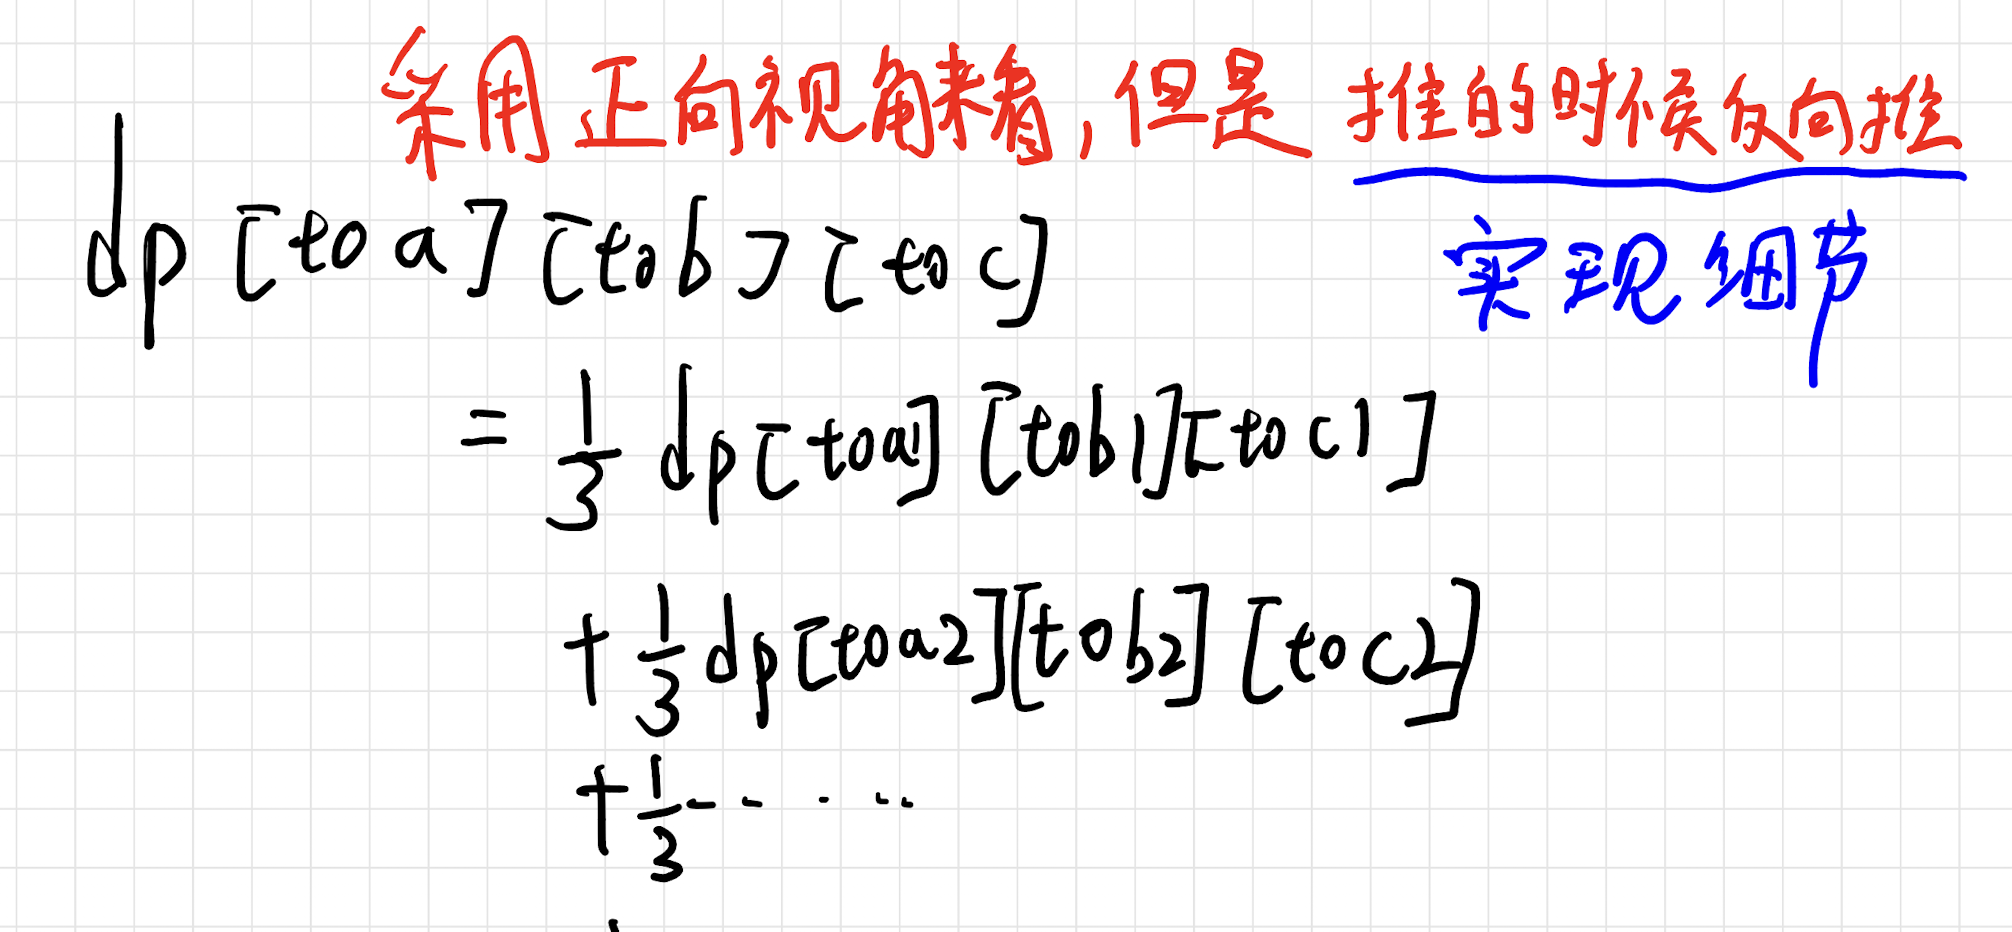 采用正向视角来看,但是 推的时候反向推
实现细节
dp[toa][tob][toc]
= 1/3 dp[toa1][tob1][toc1]
+ 1/3 dp[toa2][tob2][toc2]
+ 1/3 - - · · ·